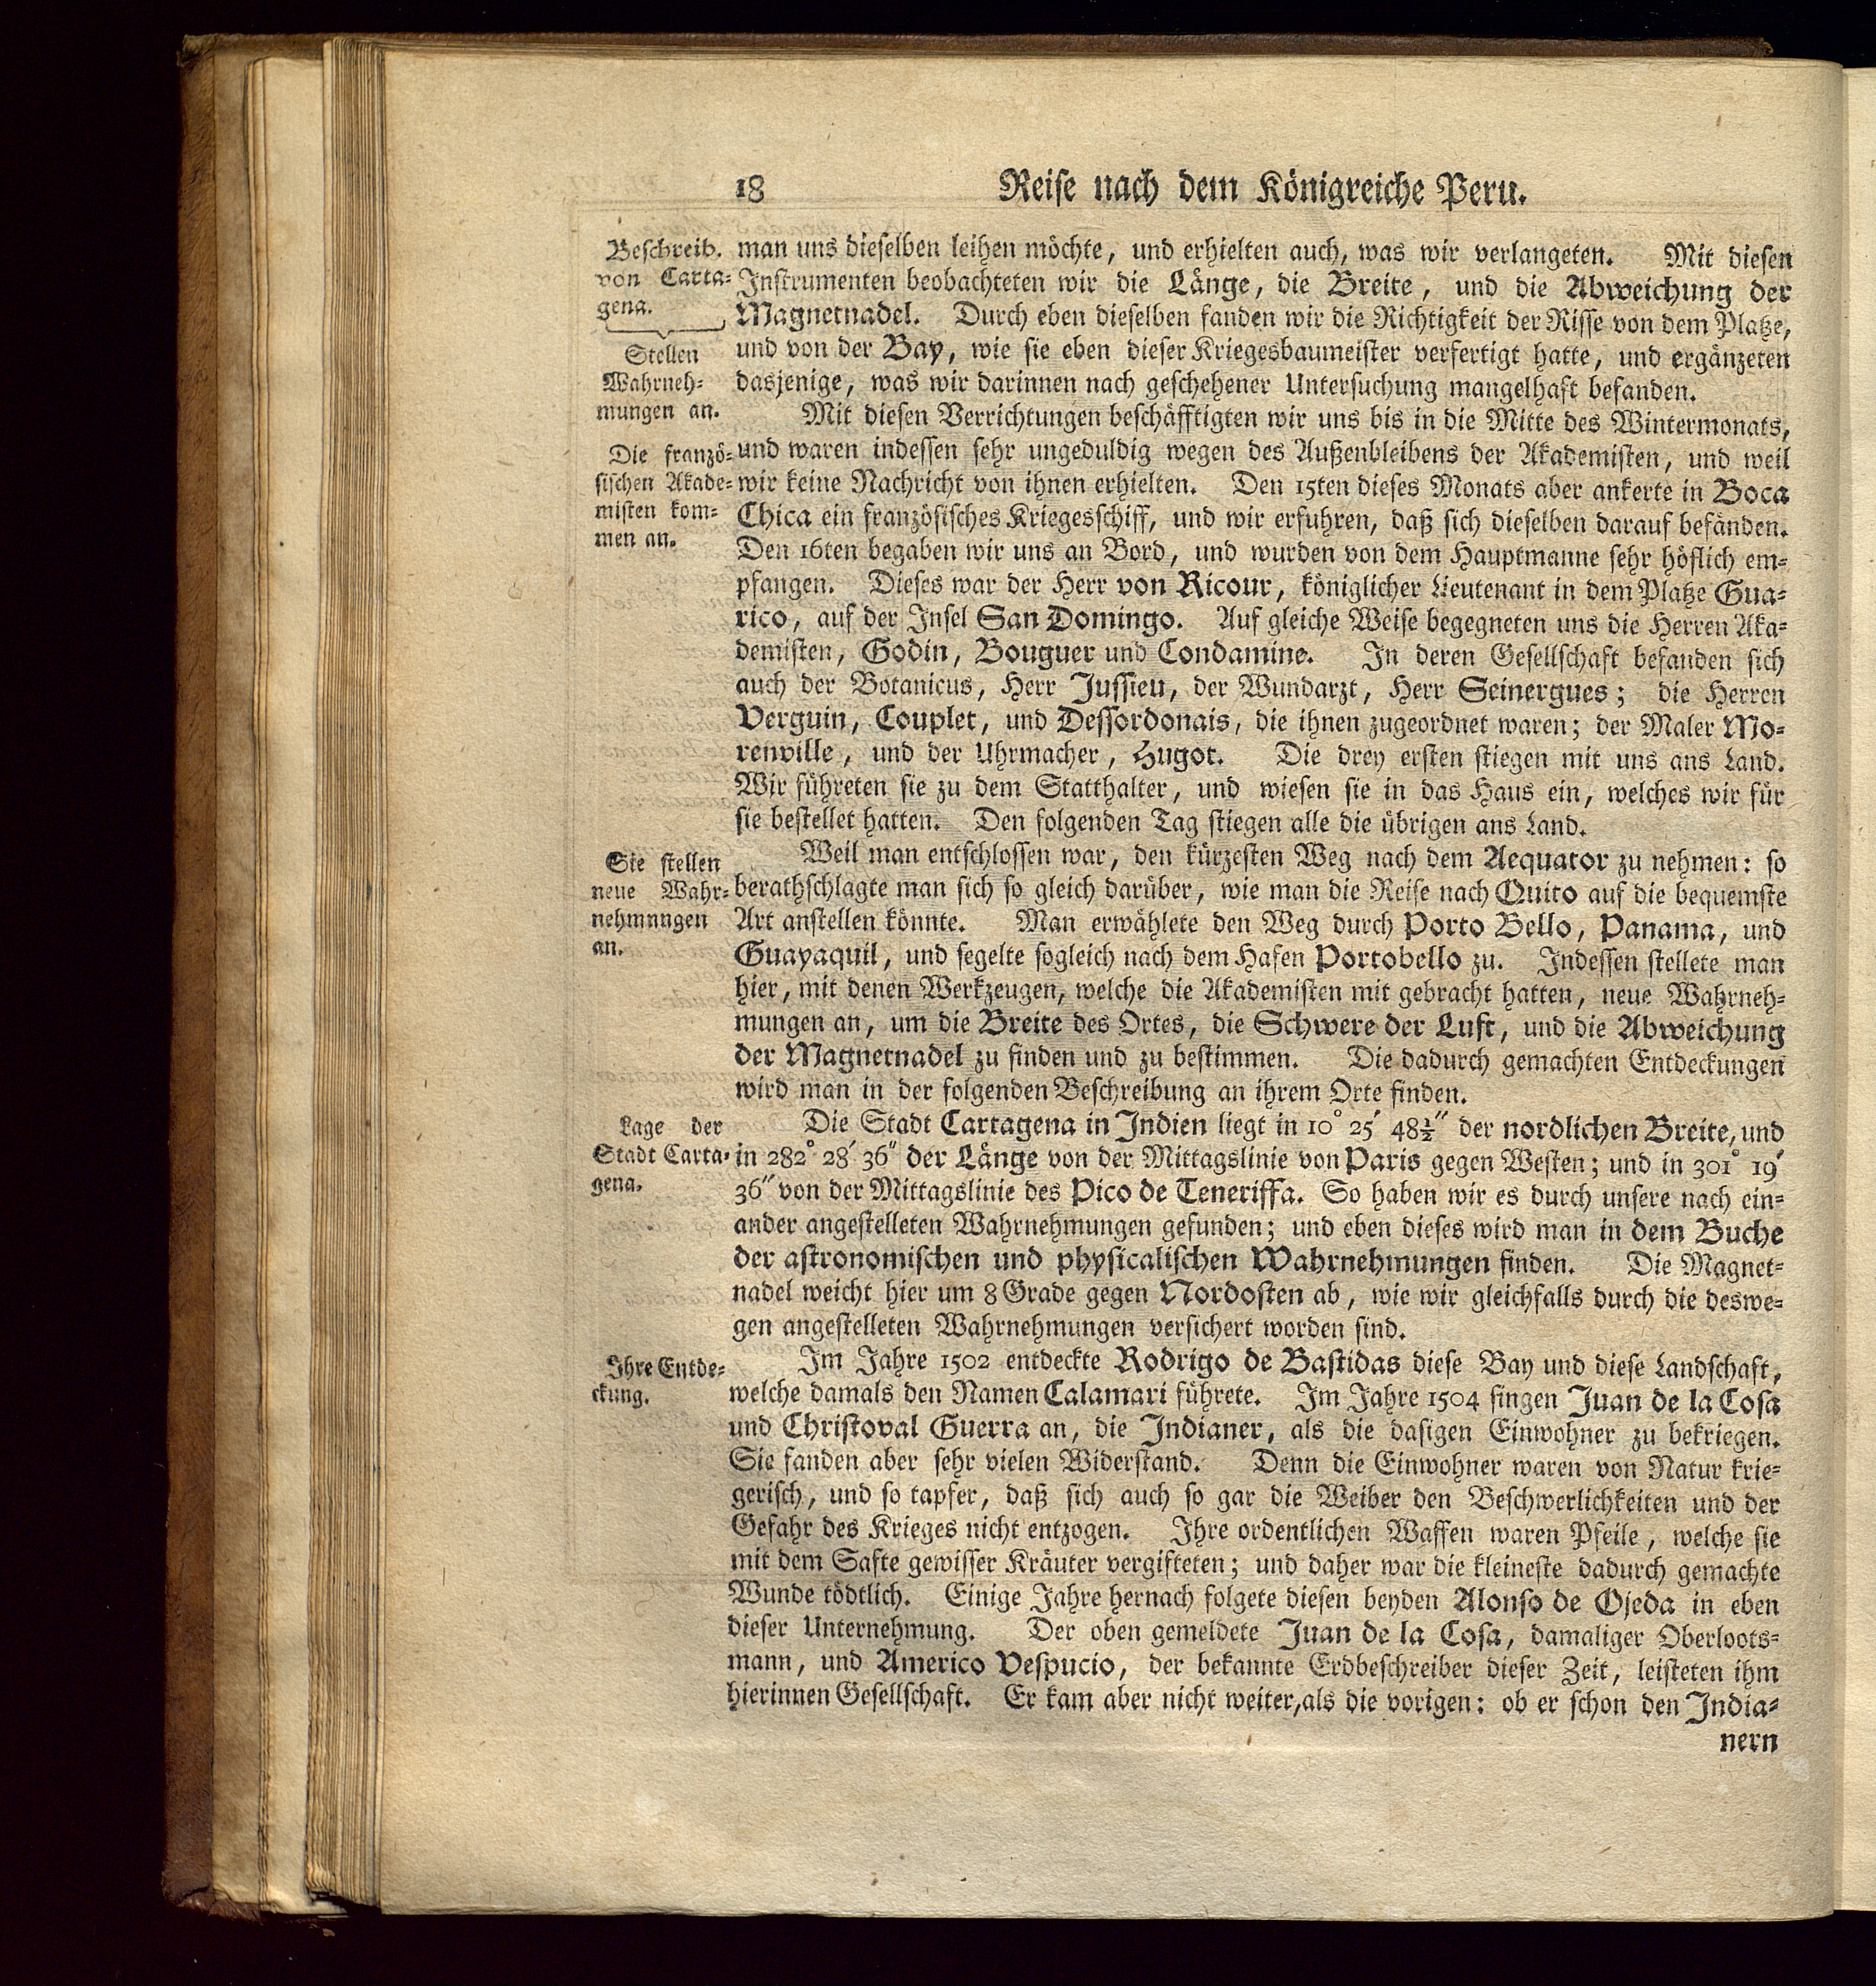 18 Reise nach dem Königreiche Peru.
Beschreib.
von Carta-
gena.
Stellen
Wahrneh-
mungen an.
Die franzö-
sischen Akade-
misten kom-
men an.
man uns dieselben leihen möchte, und erhielten auch, was wir verlangeten. Mit diesen
Instrumenten beobachteten wir die Länge, die Breite, und die Abweichung der
Magnetnadel. Durch eben dieselben fanden wir die Richtigkeit der Risse von dem Platze,
und von der Bay, wie sie eben dieser Kriegesbaumeister verfertigt hatte, und ergänzeten
dasjenige, was wir darinnen nach geschehener Untersuchung mangelhaft befanden.
Mit diesen Verrichtungen beschäfftigten wir uns bis in die Mitte des Wintermonats,
und waren indessen sehr ungeduldig wegen des Außenbleibens der Akademisten, und weil
wir keine Nachricht von ihnen erhielten. Den 15ten dieses Monats aber ankerte in Boca
Chica ein französisches Kriegesschiff, und wir erfuhren, daß sich dieselben darauf befänden.
Den 16ten begaben wir uns an Bord, und wurden von dem Hauptmanne sehr höflich em-
pfangen. Dieses war der Herr von Ricour, königlicher Lieutenant in dem Platze Gua-
rico, auf der Insel San Domingo. Auf gleiche Weise begegneten uns die Herren Aka-
demisten, Godin, Bouguer und Condamine. In deren Gesellschaft befanden sich
auch der Botanicus, Herr Jussieu, der Wundarzt, Herr Seinergues; die Herren
Verguin, Couplet, und Dessordonais, die ihnen zugeordnet waren; der Maler Mo-
renville, und der Uhrmacher, Hugot. Die drey ersten stiegen mit uns ans Land.
Wir führeten sie zu dem Statthalter, und wiesen sie in das Haus ein, welches wir für
sie bestellet hatten. Den folgenden Tag stiegen alle die übrigen ans Land.
Sie stellen
neue Wahr-
nehmnngen
an.
Weil man entschlossen war, den kürzesten Weg nach dem Aequator zu nehmen: so
berathschlagte man sich so gleich darüber, wie man die Reise nach Quito auf die bequemste
Art anstellen könnte. Man erwählete den Weg durch Porto Bello, Panama, und
Guayaquil, und segelte sogleich nach dem Hafen Portobello zu. Indessen stellete man
hier, mit denen Werkzeugen, welche die Akademisten mit gebracht hatten, neue Wahrneh-
mungen an, um die Breite des Ortes, die Schwere der Luft, und die Abweichung
der Magnetnadel zu finden und zu bestimmen. Die dadurch gemachten Entdeckungen
wird man in der folgenden Beschreibung an ihrem Orte finden.
Lage der
Stadt Carta-
gena.
Die Stadt Cartagena in Indien liegt in 10° 25′ 48½″ der nordlichen Breite, und
in 282° 28′ 36″ der Länge von der Mittagslinie von Paris gegen Westen; und in 301° 19′
36″ von der Mittagslinie des Pico de Teneriffa. So haben wir es durch unsere nach ein-
ander angestelleten Wahrnehmungen gefunden; und eben dieses wird man in dem Buche
der astronomischen und physicalischen Wahrnehmungen finden. Die Magnet-
nadel weicht hier um 8 Grade gegen Nordosten ab, wie wir gleichfalls durch die deswe-
gen angestelleten Wahrnehmungen versichert worden sind.
Ihre Entde-
ckung.
Im Jahre 1502 entdeckte Rodrigo de Bastidas diese Bay und diese Landschaft,
welche damals den Namen Calamari führete. Im Jahre 1504 fingen Juan de la Cosa
und Christoval Guerra an, die Indianer, als die dasigen Einwohner zu bekriegen.
Sie fanden aber sehr vielen Widerstand. Denn die Einwohner waren von Natur krie-
gerisch, und so tapfer, daß sich auch so gar die Weiber den Beschwerlichkeiten und der
Gefahr des Krieges nicht entzogen. Ihre ordentlichen Waffen waren Pfeile, welche sie
mit dem Safte gewisser Kräuter vergifteten; und daher war die kleineste dadurch gemachte
Wunde tödtlich. Einige Jahre hernach folgete diesen beyden Alonso de Ojeda in eben
dieser Unternehmung. Der oben gemeldete Juan de la Cosa, damaliger Oberloots-
mann, und Americo Vespucio, der bekannte Erdbeschreiber dieser Zeit, leisteten ihm
hierinnen Gesellschaft. Er kam aber nicht weiter, als die vorigen: ob er schon den India-
nern